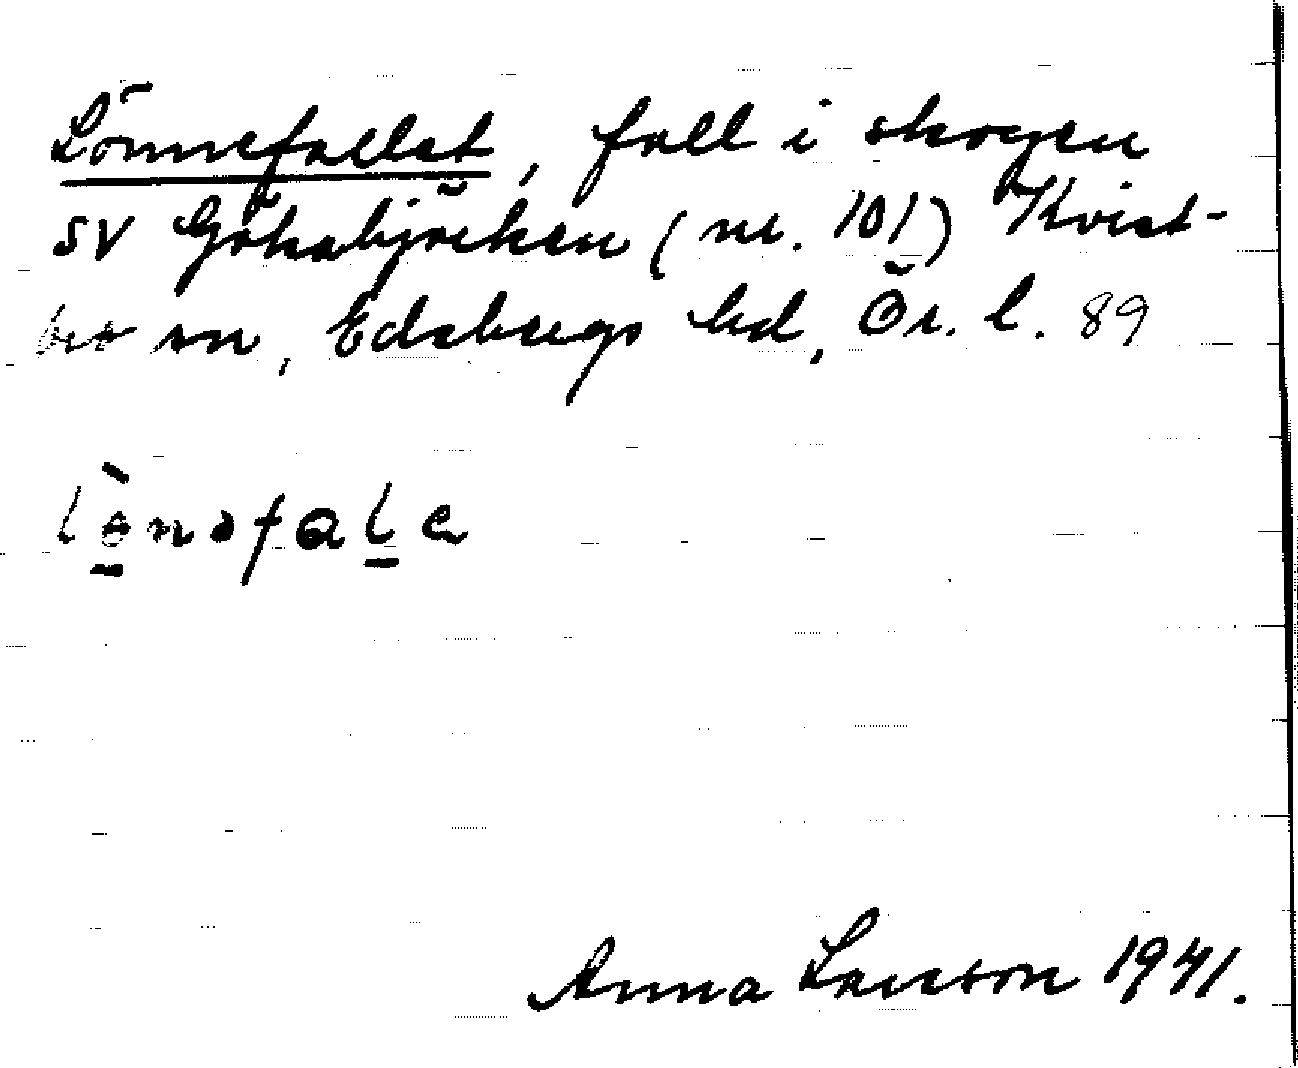 Lönnefallet, fall i skogen
SV Göksbjörken (nr. 101) Kvist-
bro sn, Edsbergs hd, Ör. l. 89
lò̱nəfaḻe
Anna Larsson 1941.